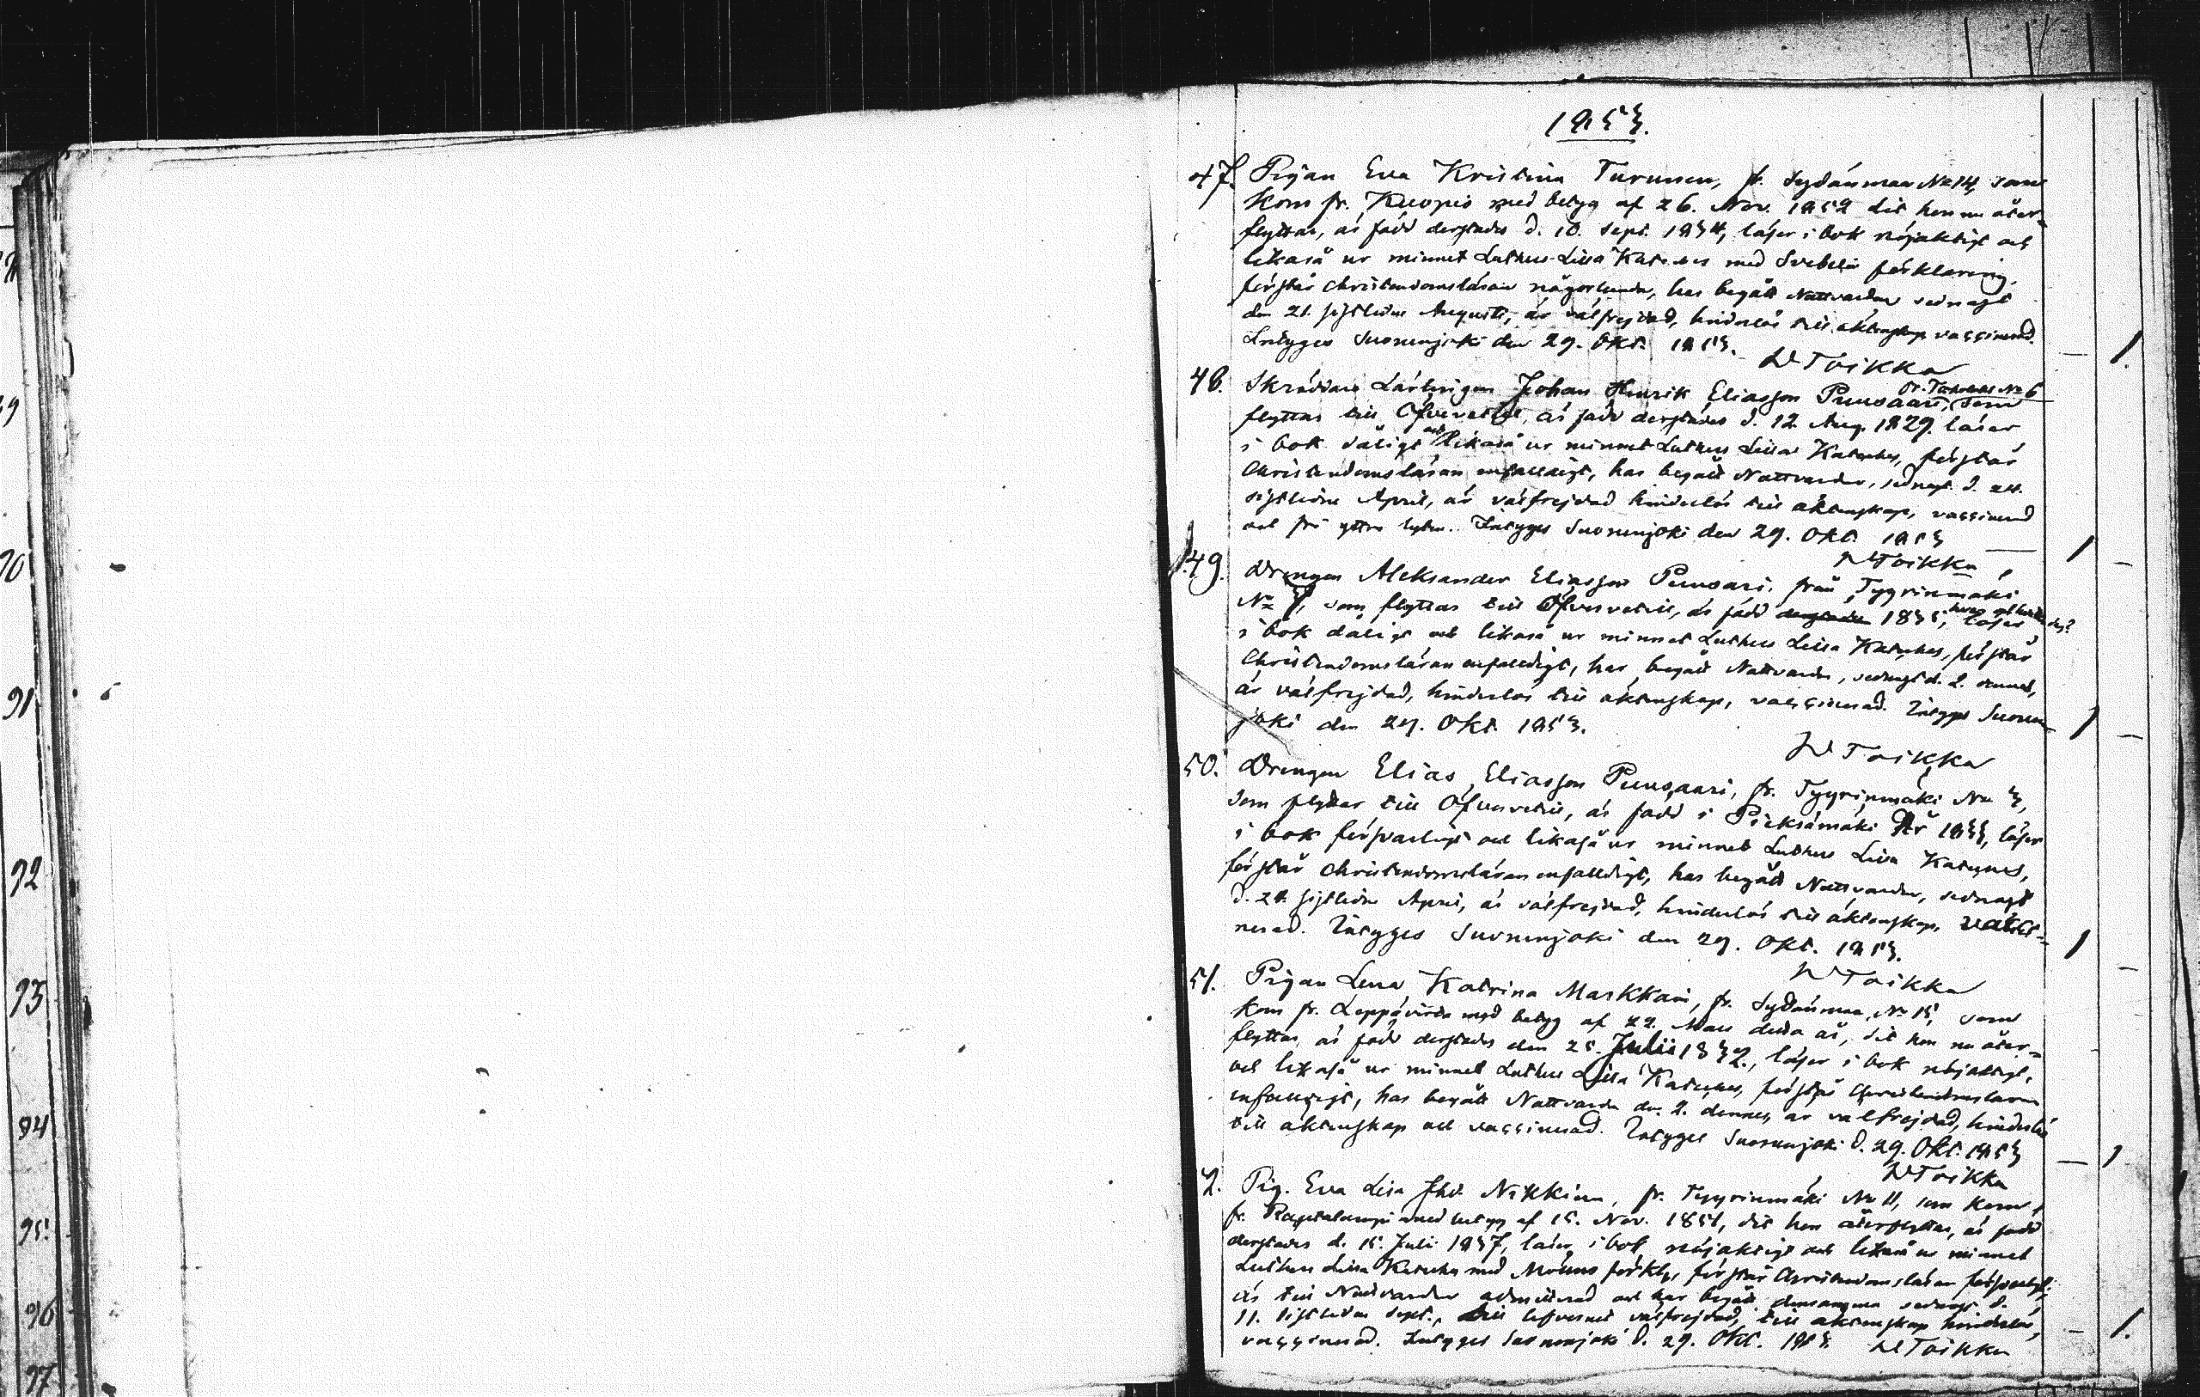 1853.
47. Pigan Eva Kristina Turunen, fr. Sydänmaa No 14, som
kom fr. Kuopio med betyg af 26. Nov. 1852 dit hon nu åter-
flyttar, är född derstädes d. 10. Sept. 1834, läser i bok nöjaktigt och
likaså ur minnet Luthers Lilla Kateches med Svebelii förklaring,
förstår christendomsläran någorlunda, har begått Nattvarden sednast
den 21. sistlidne Augusti, är välfrejdad, hinderlös till äktenskap vaccinerad.
Intygas Suonenjoki den 29. Okt. 1853.
W Toikka
48. Skräddare Lärlingen Johan Henrik Eliasson Puusaari, fr. No 6 som
flyttar till Öfvervetil, är född derstädes d. 12 Aug 1829. läser
i bok dåligt och likaså ur minnet Luthers Lilla Kateches, förstår
Christendomsläran enfalldigt, har begått Nattvarden, sednast d. 24.
sistlidne April, är välfrejdad hinderlös till äktenskap, vaccinerad
och fri yttre lyten. Intygas Suonenjoki den 29. Okt. 1853
W Toikka
49. Drengen Aleksander Eliasson Puusaari, från Tyyrinmäki
No , som flyttar till Öfvervetil, är född derstädes 1835, läser
i bok dåligt och likaså ur minnet Luthers Lilla Kateches, förstår
Christendomsläran enfalldigt, har begått Nattvarden, sednast d. 2. dennes,
är välfrejdad, hinderlös till äktenskap, vaccinerad. Intygas Suonen-
joki den 29. Okt. 1853.
W Toikka
50. Drengen Elias Eliasson Puusaari, fr. Tyyrinmäki No 3,
som flyttar till Öfvervetil, är född i Pieksämäki År 1833, läser
i bok försvarligt och likaså ur minnet Luthers Lilla Kateches,
förstår christendomsläran enfalldigt, har begått Nattvarden, sednast
d. 24. sistlidne April, är välfrejdad, hinderlös till äktenskap, vakci-
nerad. Intygas Suonenjoki den 29. Okt. 1853.
W Toikka
51. Pigan Lena Katrina Markkain, fr. Sydänmaa, No 15, som
kom fr. Leppävirta med betyg af 22. Mars detta år, dit hon nu åter-
flyttar, är född derstädes den 25. Julii 1832., läser i bok nöjaktigt,
och likaså ur minnet Luthers Lilla Kateches, förstår Christendomsläran
enfalldigt, har begått Nattvarden den 2. dennes, är välfrejdad, hinderlös
till äktenskap och vaccinerad. Intygas Suonenjoki d. 29. Okt. 1853
W Toikka
2. Pig. Eva Lisa Nikkinen, fr. Tyyrinmäki No 11, som kom
fr. Rautalampi med betyg af 15. Nov. 1851, dit hon återflyttar, är född
derstädes d. 15. Juli 1837, läser i bok nöjaktigt och likaså ur minnet
Luthers Lilla Kateches med förkl., förstår Christendomsläran försvarligt,
är till Nattvarden admitterad och har begått densamma sednast d.
11. sistlidne Sept., till lefvernet välfrejdad, till äktenskap hinderlös,
vaccinerad. Intygas Suonenjoki d. 29. Okt. 1853. W Toikka
90
91
92
93
94
95.
96
97